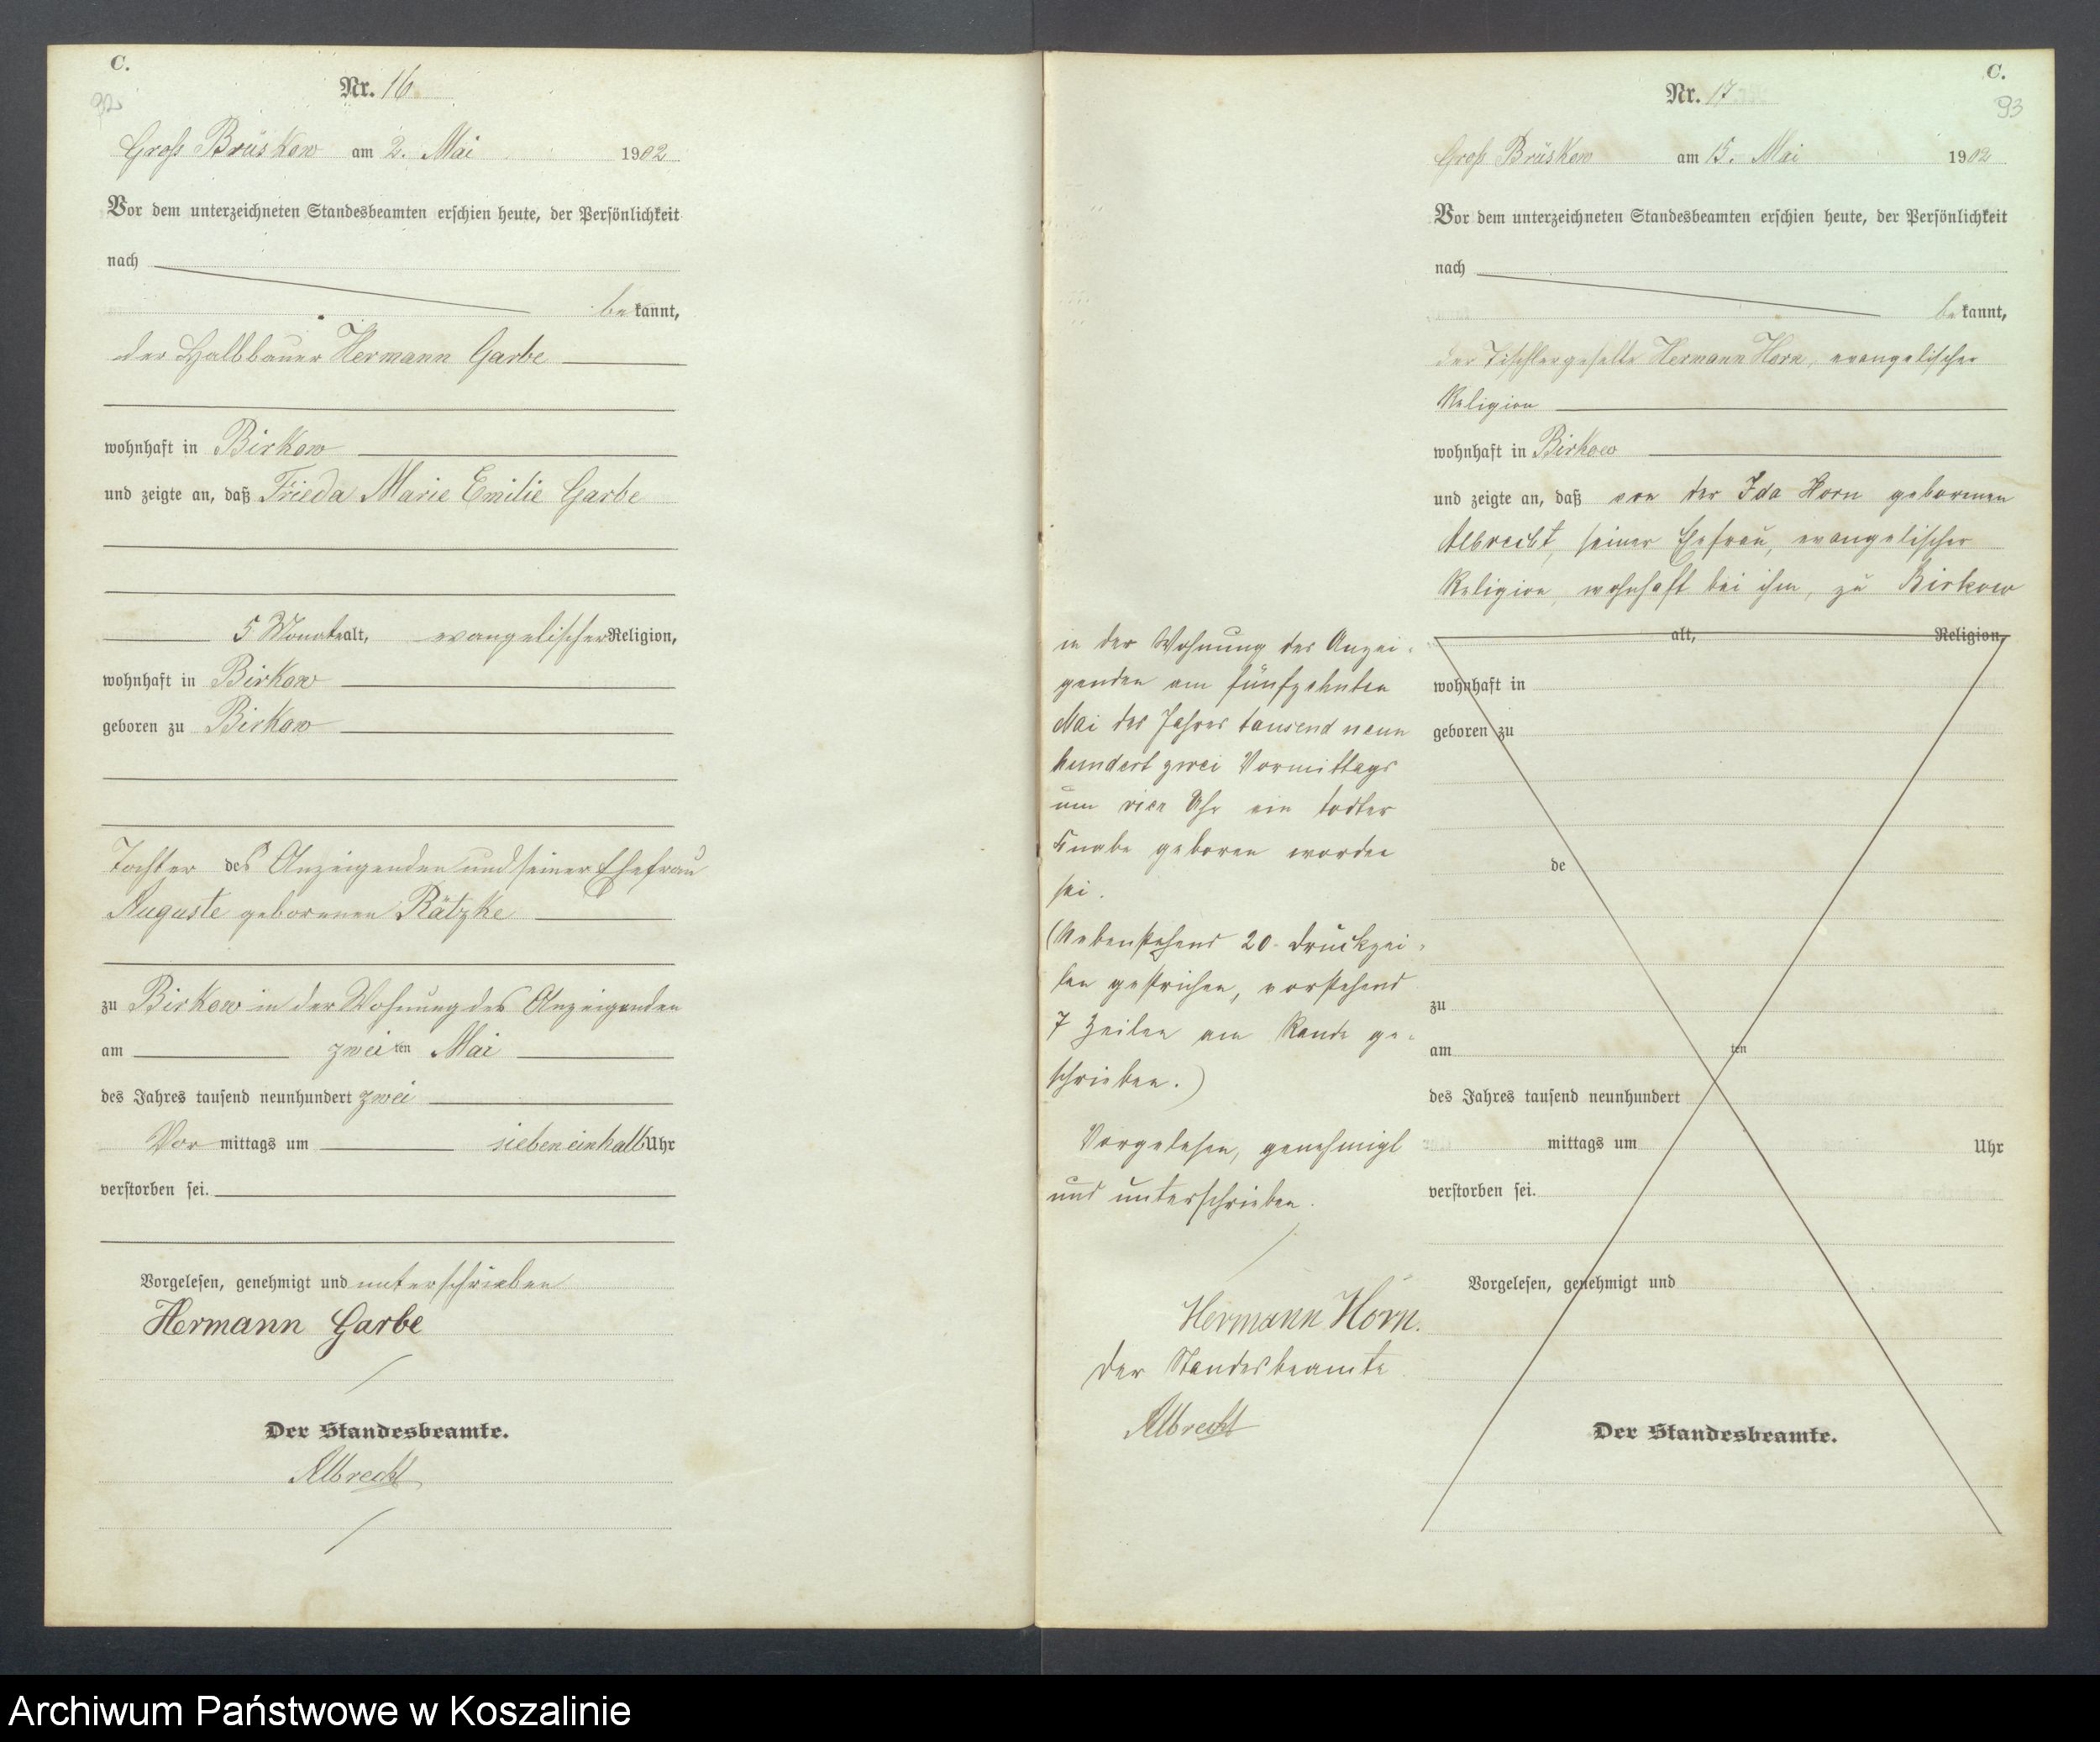 C.
Nr. 16
Groß Brüskow am 2. Mai 1902
Vor dem unterzeichneten Standesbeamten erschien heute, der Persönlichkeit
nach
bekannt,
der Halbbauer Hermann Garbe
wohnhaft in Birkow
und zeigte an, daß Frieda Marie Emilie Garbe
5 Monate alt, evangelischer Religion,
wohnhaft in Birkow
geboren zu Birkow
Tochter des Anzeigenden und seiner Ehefrau
Auguste geborenen Rätzke
zu Birkow in der Wohnung des Anzeigenden
am zweiten Mai
des Jahres tausend neunhundert zwei
Vor mittags um sieben einhalb Uhr
verstorben sei.
Vorgelesen, genehmigt und unterschrieben
Hermann Garbe
Der Standesbeamte.
Albrecht
C.
93
Nr. 17
Groß Brüskow am 15. Mai 1902
Vor dem unterzeichneten Standesbeamten erschien heute, der Persönlichkeit
nach
bekannt,
der Tischlergeselle Hermann Horn, evangelischer
Religion
wohnhaft in Birkow
und zeigte an, daß von der Ida Horn geborenen
Albrecht, seiner Ehefrau, evangelischer
Religion, wohnhaft bei ihm, zu Birkow
in der Wohnung des Anzei-
genden am fünfzehnten
Mai des Jahres tausend neun
hundert zwei Vormittags
um vier Uhr ein todter
Knabe geboren worden
sei.
(Nebenstehend 20 Druckzei-
len gestrichen, vorstehend
7 Zeilen am Rande ge-
schrieben.)
Vorgelesen, genehmigt
und unterschrieben.
Hermann Horn.
Der Standesbeamte
Albrecht
alt, Religion,
wohnhaft in
geboren zu
de
zu
am ten
des Jahres tausend neunhundert
mittags um Uhr
verstorben sei.
Vorgelesen, genehmigt und
Der Standesbeamte.
Archiwum Państwowe w Koszalinie